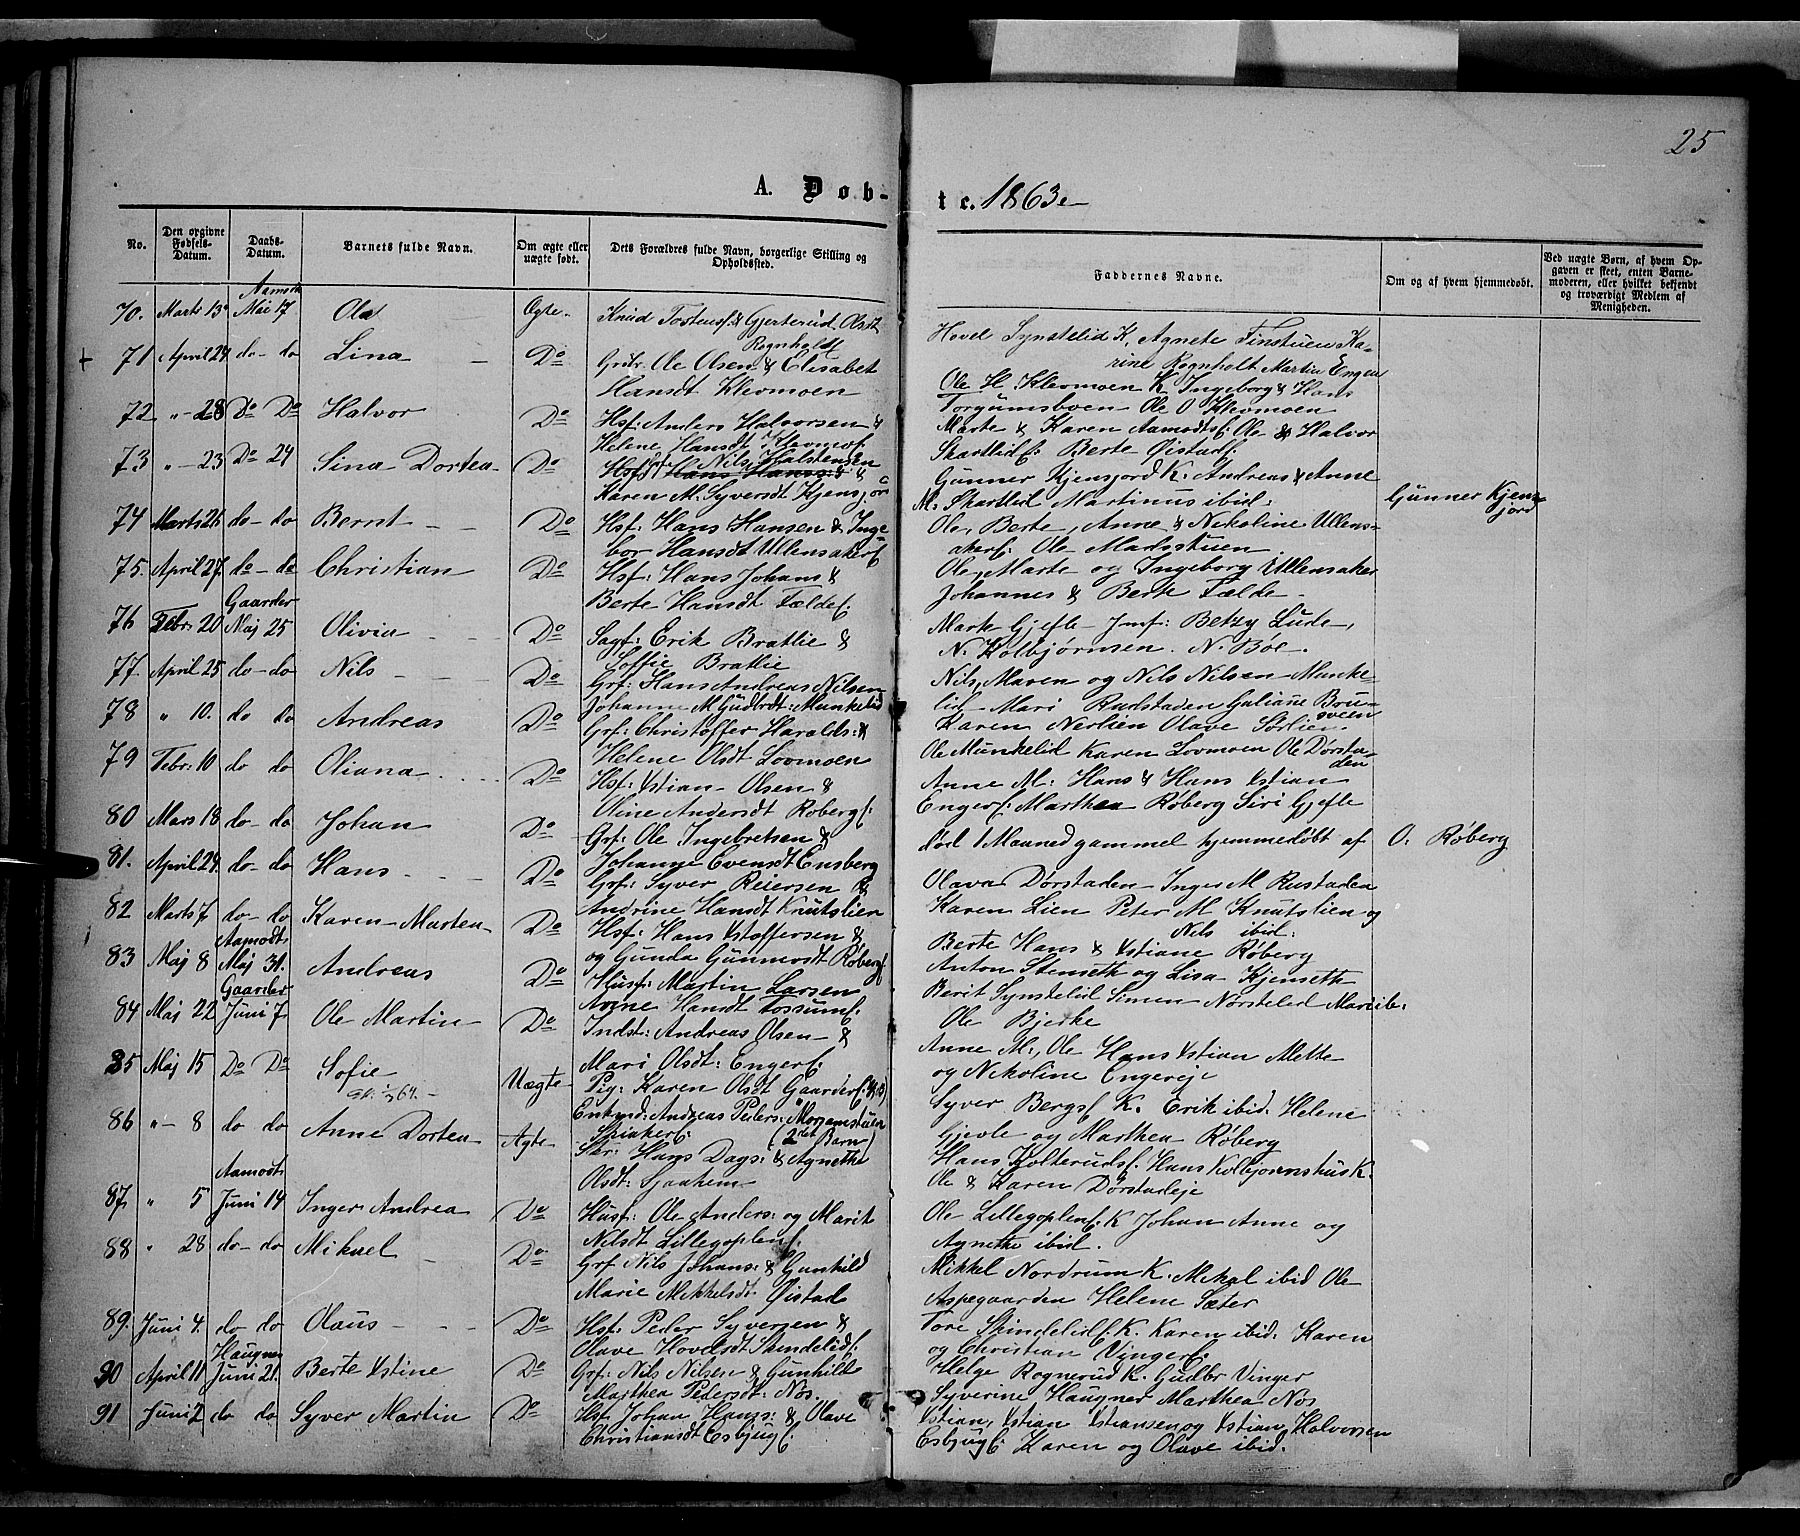 25
A. Døb-
te. 1863
No.
Den opgivne Fødsels-Datum.
Daabs-Datum.
Barnets fulde Navn.
Om ægte eller uægte født.
Dets Forældres fulde Navn, borgerlige Stilling og Opholdssted.
Faddernes Navne.
Om og af hvem hjemmedøbt.
Ved uægte Børn, af hvem Opgaven er skeet, enten Barnemoderen, eller hvilket bekjendt og troværdigt Medlem af Menigheden.
Aamodt
70. Marts 13 Mai 17 Ola Ægte.
Knud Tostens: & Gjerterud Olsdt
Rognholdt
Hovel Synstelid K, Agnete Finstuen Ka-
rine Rognholt Martin Engen
71 April 24 do - do Lina Do
Grdr. Ole Olsen & Elisabet
Hansdt Klevmoen
Ole H. Klevmoen K. Ingeborg & Hans
Torgumsboen Ole O Klevmoen
72 " - 28 Do Do Halvor Do
Hsf: Anders Halvorsen &
Helene Hansdt Klevmo
Marte & Karen Aamodts Ole & Halvor
Skartlid Berte Øistad
73 " - 23 Do 24 Sina Dortea Do
Nils Halstensen
Hans Hans: &
Karen M. Syversdt Kjensjor
Gunner Kjensjord K. Andreas & Anne
M. Skartlid Martinus ibid.
Gunner Kjens-
jord
74 Marts 26 do - do Bernt Do
Hsf: Hans Hansen & Inge-
bor Hansdt Ullensaker
Ole, Berte, Anne & Nikoline Ullens-
aker Ole Madsstuen
75. April 27. do - do Christian Do
Hsf: Hans Johans &
Berte Hansdt Fælde
Ole, Marte og Ingeborg Ullensaker
Johannes & Berte Fælde
Gaarder
76 Febr: 20 Maj 25 Olivia Do
Sagf: Erik Bratlie &
Soffie Bratlie
Mark Gjefle Jmf: Betzy Lude,
N. Kolbjørnsen. N. Bøe.
77. April 25 do - do Nils Do
Grf: Hans Andreas Nilsen
Johanne M Gudbrdt: Munkelid
Nils, Maren og Nils Nilsen Munke-
lid Mari Rudstaden Galiane Bru-
sveen
78 " 10. do do Andreas Do
Grf: Christoffer Haralds: &
Helene Olsdt Lovmoen
Karen Nerlien Olave Sørlien
Ole Munkelid Karen Lovmoen Ole Dorsta-
den
79 Febr: 10 do do Oliana Do
Hsf: Xstian Olsen &
Oline Andersdt Roberg
Anne M: Hans & Hans Xstian
Enger Marthea Røberg Siri Gjefle
80 Mars 18 do - do Johan Do
Grf: Ole Ingebretsen &
Johanne Evensdt Ensberg
død 1 Maaned gammel hjemmedøbt af O. Røberg
81. April 24. do - do Hans Do
Grf: Syver Reiersen &
Andrine Hansdt Knutslien
Olava Dørstaden Inger M Rustaden
Karen Lien Peter M Knutslien og
Nils ibid.
82 Marts 7 do - do Karen Marten Do
Hsf: Hans Xstoffersen &
og Gunda Gunnosdt Røberg
Berte Hans & Xstiane Røberg
Aamodt
83 Maj 8 Maj 31. Andreas Do
Husf: Martin Larsen
Anne Hansdt Fossum
Anton Stenseth og Lisa Kjenseth
Berit Synstelid Simen Nørstelid Mari ib:
Gaarder
84 Maj 22 Juni 7 Ole Martin Do
Indst: Andreas Olsen &
Mari Olsdt: Enger
Ole Bjerke
Anne M:, Ole Hans Xstian Mette
og Nikoline Engereje
85 Maj 15 Do Do Sofie Uægte
Pig: Karen Olsdt Gaarder
Enkmd: Andreas Peders: Morgamstuen
(2det Barn)
Syver Bergs K. Erik ibid. Helene
Gjevle og Marthea Røberg
86 " - 8 do do Anne Dorten Ægte
Hans Dags: & Agnethe
Olsdt: Sjaahem
Hans Kolterud Hans Kolbjørnshus K.
Ole & Karen Dørstadeje
Aamodt
87 " 5 Juni 14 Inger Andrea Do
Husf: Ole Anders: og Marit
Nilsdt Lillegoplen
Ole Lillegoplen K Johan Anne og
Agnethe ibid.
88 " 28 do - do Mikael Do
Grf Nils Johans: & Gunhild
Marie Mikkelsdt: Øistad
Mikkel Nordrum K. Mekal ibid Ole
Aspegaarden Helene Sæter
89. Juni 4. do do Olaus Do
Hsf: Peder Syversen &
Olave Hovelsdt Skindelid
Tore Skindelid K. Karen ibid: Karen
og Christian Vinger
Haugner
90 April 11 Juni 21. Berte Xstine Do
Grf: Nils Nilsen & Gunhilde
Marthea Pedersdt: Nos.
Helge Rognerud K. Gudbr Vinger
Syverine Haugner Marthea Nos
91 Juni 2 do do Syver Martin Do
Hsf Johan Hans: & Olave
Christiansdt Esbjug
Xstian, Xstian Xstiansen og Xstian Halvorsen
Esbjug Karen og Olave ibid.